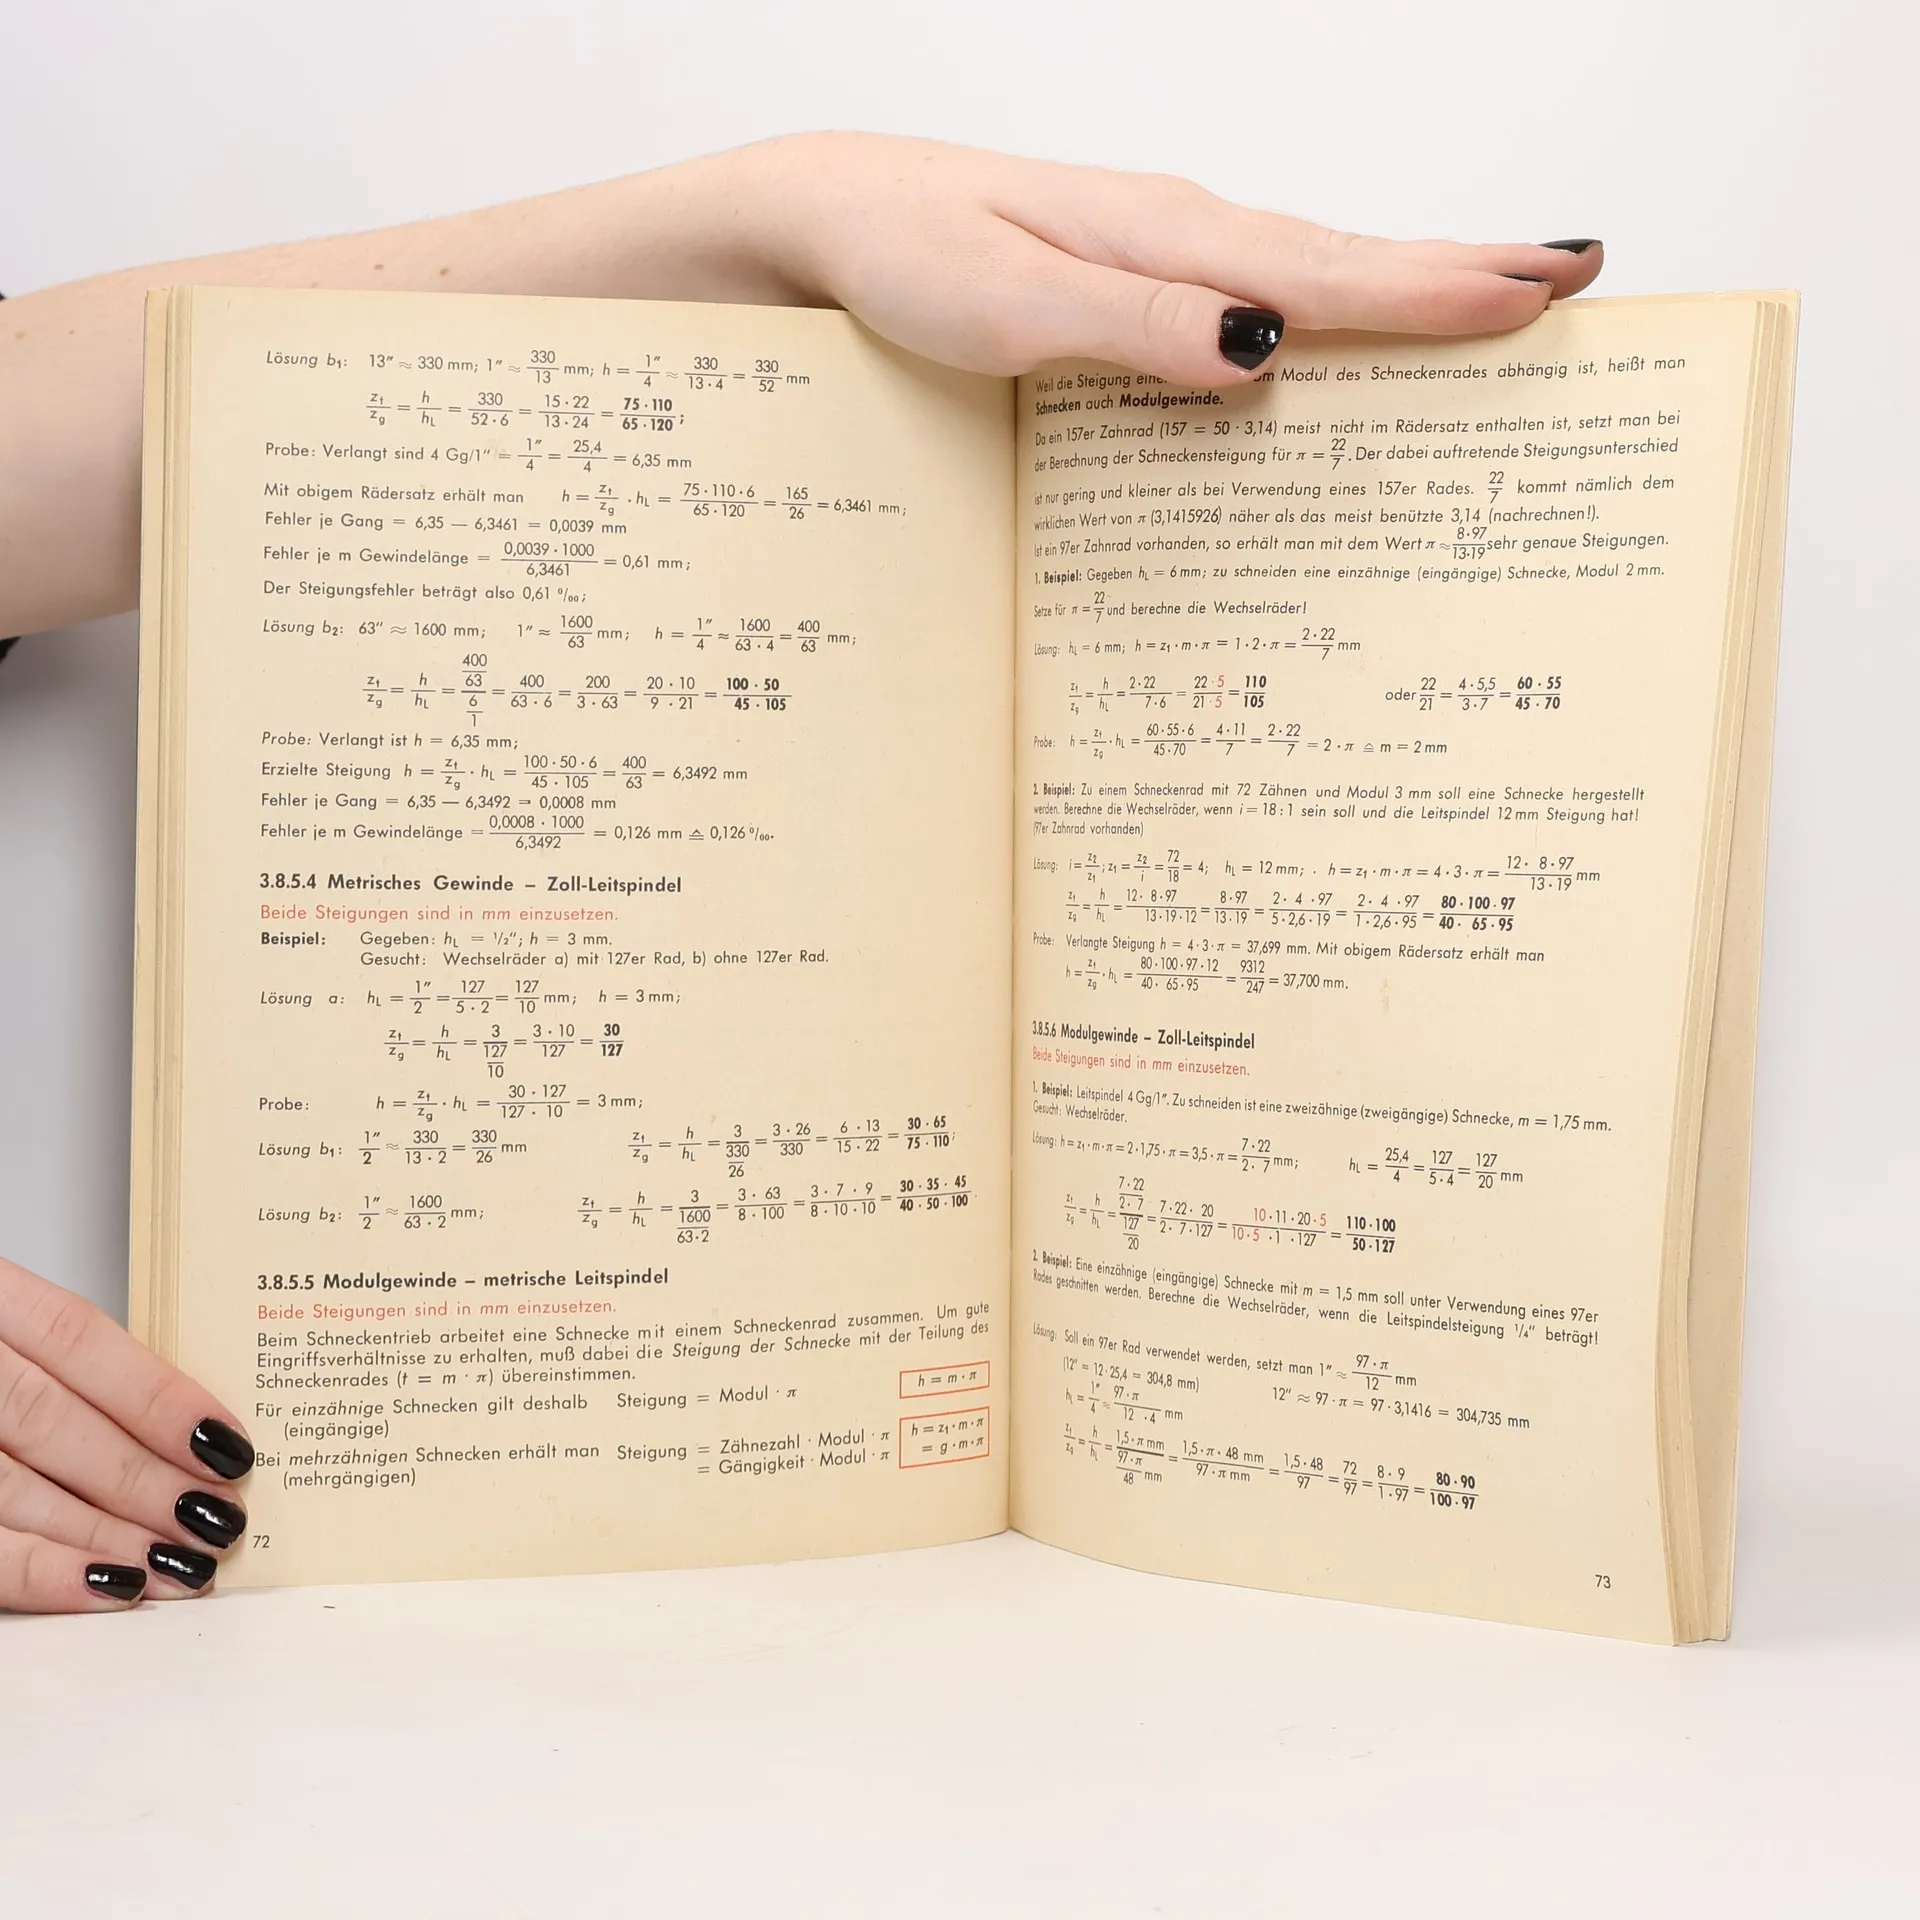 Lösung b₁: 13″ ≈ 330 mm; 1″ ≈ 330/13 mm; h = 1″/4 ≈ 330/(13 · 4) = 330/52 mm
z_t/z_g = h/h_L = 330/(52 · 6) = (15 · 22)/(13 · 24) = (75 · 110)/(65 · 120);
Probe: Verlangt sind 4 Gg/1″ = 1″/4 = 25,4/4 = 6,35 mm
Mit obigem Rädersatz erhält man h = z_t/z_g · h_L = (75 · 110 · 6)/(65 · 120) = 165/26 = 6,3461 mm;
Fehler je Gang = 6,35 — 6,3461 = 0,0039 mm
Fehler je m Gewindelänge = (0,0039 · 1000)/6,3461 = 0,61 mm;
Der Steigungsfehler beträgt also 0,61 ⁰/₀₀;
Lösung b₂: 63″ ≈ 1600 mm; 1″ ≈ 1600/63 mm; h = 1″/4 ≈ 1600/(63 · 4) = 400/63 mm;
z_t/z_g = h/h_L = (400/63)/(6/1) = 400/(63 · 6) = 200/(3 · 63) = (20 · 10)/(9 · 21) = (100 · 50)/(45 · 105)
Probe: Verlangt ist h = 6,35 mm;
Erzielte Steigung h = z_t/z_g · h_L = (100 · 50 · 6)/(45 · 105) = 400/63 = 6,3492 mm
Fehler je Gang = 6,35 — 6,3492 = 0,0008 mm
Fehler je m Gewindelänge = (0,0008 · 1000)/6,3492 = 0,126 mm ≙ 0,126 ⁰/₀₀.
3.8.5.4 Metrisches Gewinde – Zoll-Leitspindel
Beide Steigungen sind in mm einzusetzen.
Beispiel: Gegeben: h_L = ¹/₂″; h = 3 mm.
Gesucht: Wechselräder a) mit 127er Rad, b) ohne 127er Rad.
Lösung a: h_L = 1″/2 = 127/(5 · 2) = 127/10 mm; h = 3 mm;
z_t/z_g = h/h_L = 3/(127/10) = (3 · 10)/127 = 30/127
Probe: h = z_t/z_g · h_L = (30 · 127)/(127 · 10) = 3 mm;
Lösung b₁: 1″/2 ≈ 330/(13 · 2) = 330/26 mm z_t/z_g = h/h_L = 3/(330/26) = (3 · 26)/330 = (6 · 13)/(15 · 22) = (30 · 65)/(75 · 110);
Lösung b₂: 1″/2 ≈ 1600/(63 · 2) mm; z_t/z_g = h/h_L = 3/(1600/(63·2)) = (3 · 63)/(8 · 100) = (3 · 7 · 9)/(8 · 10 · 10) = (30 · 35 · 45)/(40 · 50 · 100).
3.8.5.5 Modulgewinde – metrische Leitspindel
Beide Steigungen sind in mm einzusetzen.
Beim Schneckentrieb arbeitet eine Schnecke mit einem Schneckenrad zusammen. Um gute
Eingriffsverhältnisse zu erhalten, muß dabei die Steigung der Schnecke mit der Teilung des
Schneckenrades (t = m · π) übereinstimmen.
Für einzähnige Schnecken gilt deshalb Steigung = Modul · π h = m · π
(eingängige)
Bei mehrzähnigen Schnecken erhält man Steigung = Zähnezahl · Modul · π h = z₁ · m · π
(mehrgängigen) = Gängigkeit · Modul · π = g · m · π
72
Weil die Steigung Modul des Schneckenrades abhängig ist, heißt man
Schnecken auch Modulgewinde.
Da ein 157er Zahnrad (157 = 50 · 3,14) meist nicht im Rädersatz enthalten ist, setzt man bei
der Berechnung der Schneckensteigung für π = 22/7. Der dabei auftretende Steigungsunterschied
ist nur gering und kleiner als bei Verwendung eines 157er Rades. 22/7 kommt nämlich dem
wirklichen Wert von π (3,1415926) näher als das meist benützte 3,14 (nachrechnen!).
Ist ein 97er Zahnrad vorhanden, so erhält man mit dem Wert π ≈ (8·97)/(13·19) sehr genaue Steigungen.
1. Beispiel: Gegeben h_L = 6 mm; zu schneiden eine einzähnige (eingängige) Schnecke, Modul 2 mm.
Setze für π = 22/7 und berechne die Wechselräder!
Lösung: h_L = 6 mm; h = z₁ · m · π = 1 · 2 · π = (2 · 22)/7 mm
z_t/z_g = h/h_L = (2 · 22)/(7 · 6) = (22 · 5)/(21 · 5) = 110/105 oder 22/21 = (4 · 5,5)/(3 · 7) = (60 · 55)/(45 · 70)
Probe: h = z_t/z_g · h_L = (60 · 55 · 6)/(45 · 70) = (4 · 11)/7 = (2 · 22)/7 = 2 · π ≙ m = 2 mm
2. Beispiel: Zu einem Schneckenrad mit 72 Zähnen und Modul 3 mm soll eine Schnecke hergestellt
werden. Berechne die Wechselräder, wenn i = 18 : 1 sein soll und die Leitspindel 12 mm Steigung hat!
(97er Zahnrad vorhanden)
Lösung: i = z₂/z₁; z₁ = z₂/i = 72/18 = 4; h_L = 12 mm; h = z₁ · m · π = 4 · 3 · π = (12 · 8 · 97)/(13 · 19) mm
z_t/z_g = h/h_L = (12 · 8 · 97)/(13 · 19 · 12) = (8 · 97)/(13 · 19) = (2 · 4 · 97)/(5 · 2,6 · 19) = (2 · 4 · 97)/(1 · 2,6 · 95) = (80 · 100 · 97)/(40 · 65 · 95)
Probe: Verlangte Steigung h = 4 · 3 · π = 37,699 mm. Mit obigem Rädersatz erhält man
h = z_t/z_g · h_L = (80 · 100 · 97 · 12)/(40 · 65 · 95) = 9312/247 = 37,700 mm.
3.8.5.6 Modulgewinde – Zoll-Leitspindel
Beide Steigungen sind in mm einzusetzen.
1. Beispiel: Leitspindel 4 Gg/1″. Zu schneiden ist eine zweizähnige (zweigängige) Schnecke, m = 1,75 mm.
Gesucht: Wechselräder.
Lösung: h = z₁ · m · π = 2 · 1,75 · π = 3,5 · π = (7 · 22)/(2 · 7) mm; h_L = 25,4/4 = 127/(5 · 4) = 127/20 mm
z_t/z_g = h/h_L = ((7 · 22)/(2 · 7))/(127/20) = (7 · 22 · 20)/(2 · 7 · 127) = (10 · 11 · 20 · 5)/(10 · 5 · 1 · 127) = (110 · 100)/(50 · 127)
2. Beispiel: Eine einzähnige (eingängige) Schnecke mit m = 1,5 mm soll unter Verwendung eines 97er
Rades geschnitten werden. Berechne die Wechselräder, wenn die Leitspindelsteigung ¹/₄″ beträgt!
Lösung: Soll ein 97er Rad verwendet werden, setzt man 1″ ≈ (97 · π)/12 mm
(12″ = 12 · 25,4 = 304,8 mm) 12″ ≈ 97 · π = 97 · 3,1416 = 304,735 mm
h_L = 1″/4 ≈ (97 · π)/(12 · 4) mm
z_t/z_g = h/h_L = (1,5 · π mm)/((97 · π)/48 mm) = (1,5 · π · 48 mm)/(97 · π mm) = (1,5 · 48)/97 = 72/97 = (8 · 9)/(1 · 97) = (80 · 90)/(100 · 97)
73